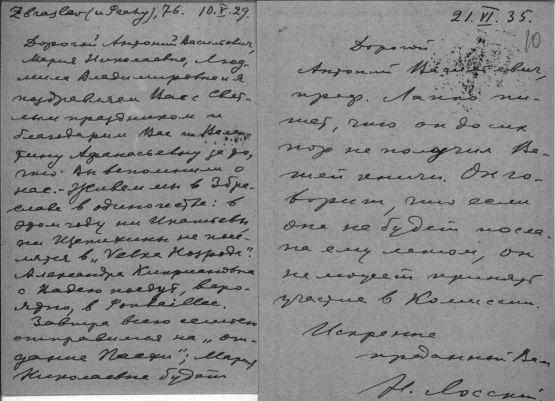 Zbraslav (u Prahy), 76. 10.V.29.
Дорогой Антоний Васильевич,
Мария Николаевна, Люд-
мила Владимировна и я
поздравляем Вас с Свет-
лым праздником и
благодарим Вас и Вален-
тину Афанасьевну за то,
что Вы вспомнили о
нас. Живем мы в Збра-
славе в одиночестве: в
этом году ни Игнатьевы
ни не посе-
лятся в „Velká Hospoda“.
Александра Киприановна
с Надею поедут, веро-
ятно, в Pontaillac.
Завтра всею семьею
отправимся на „от-
дание Пасхи“; Мария
Николаевна будет
21.VI.35.
10
Дорогой
Антоний Васильевич,
проф. Лапко пи-
шет, что он до сих
пор не получил Ва-
шей книги. Он го-
ворит, что если
она не будет посла-
на ему летом, он
не может принять
участие в Комиссии.
Искренне
преданный Вам
Н. Лосский